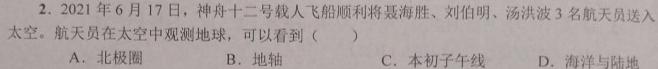 2．2021年6月17日，神舟十二号载人飞船顺利将聂海胜、刘伯明、汤洪波3名航天员送入
太空。航天员在太空中观测地球，可以看到（　　）
A．北极圈　　B．地轴　　C．本初子午线　　D．海洋与陆地